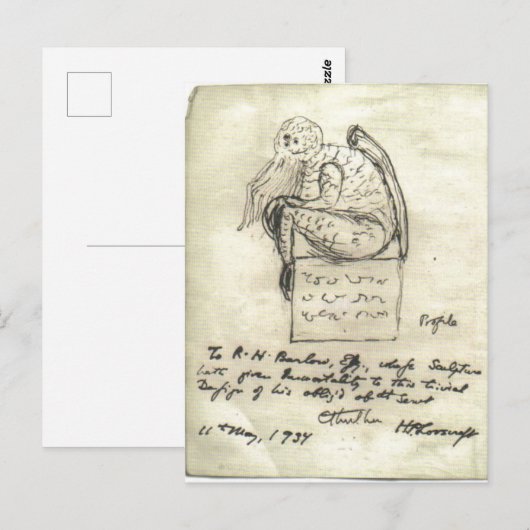 zazzle
Profile
To R. H. Barlow, Esq., whose Sculpture
hath given Immortality to this trivial
Design of his oblig'd obt Servt
Cthulhu
HPLovecraft
11th May, 1934